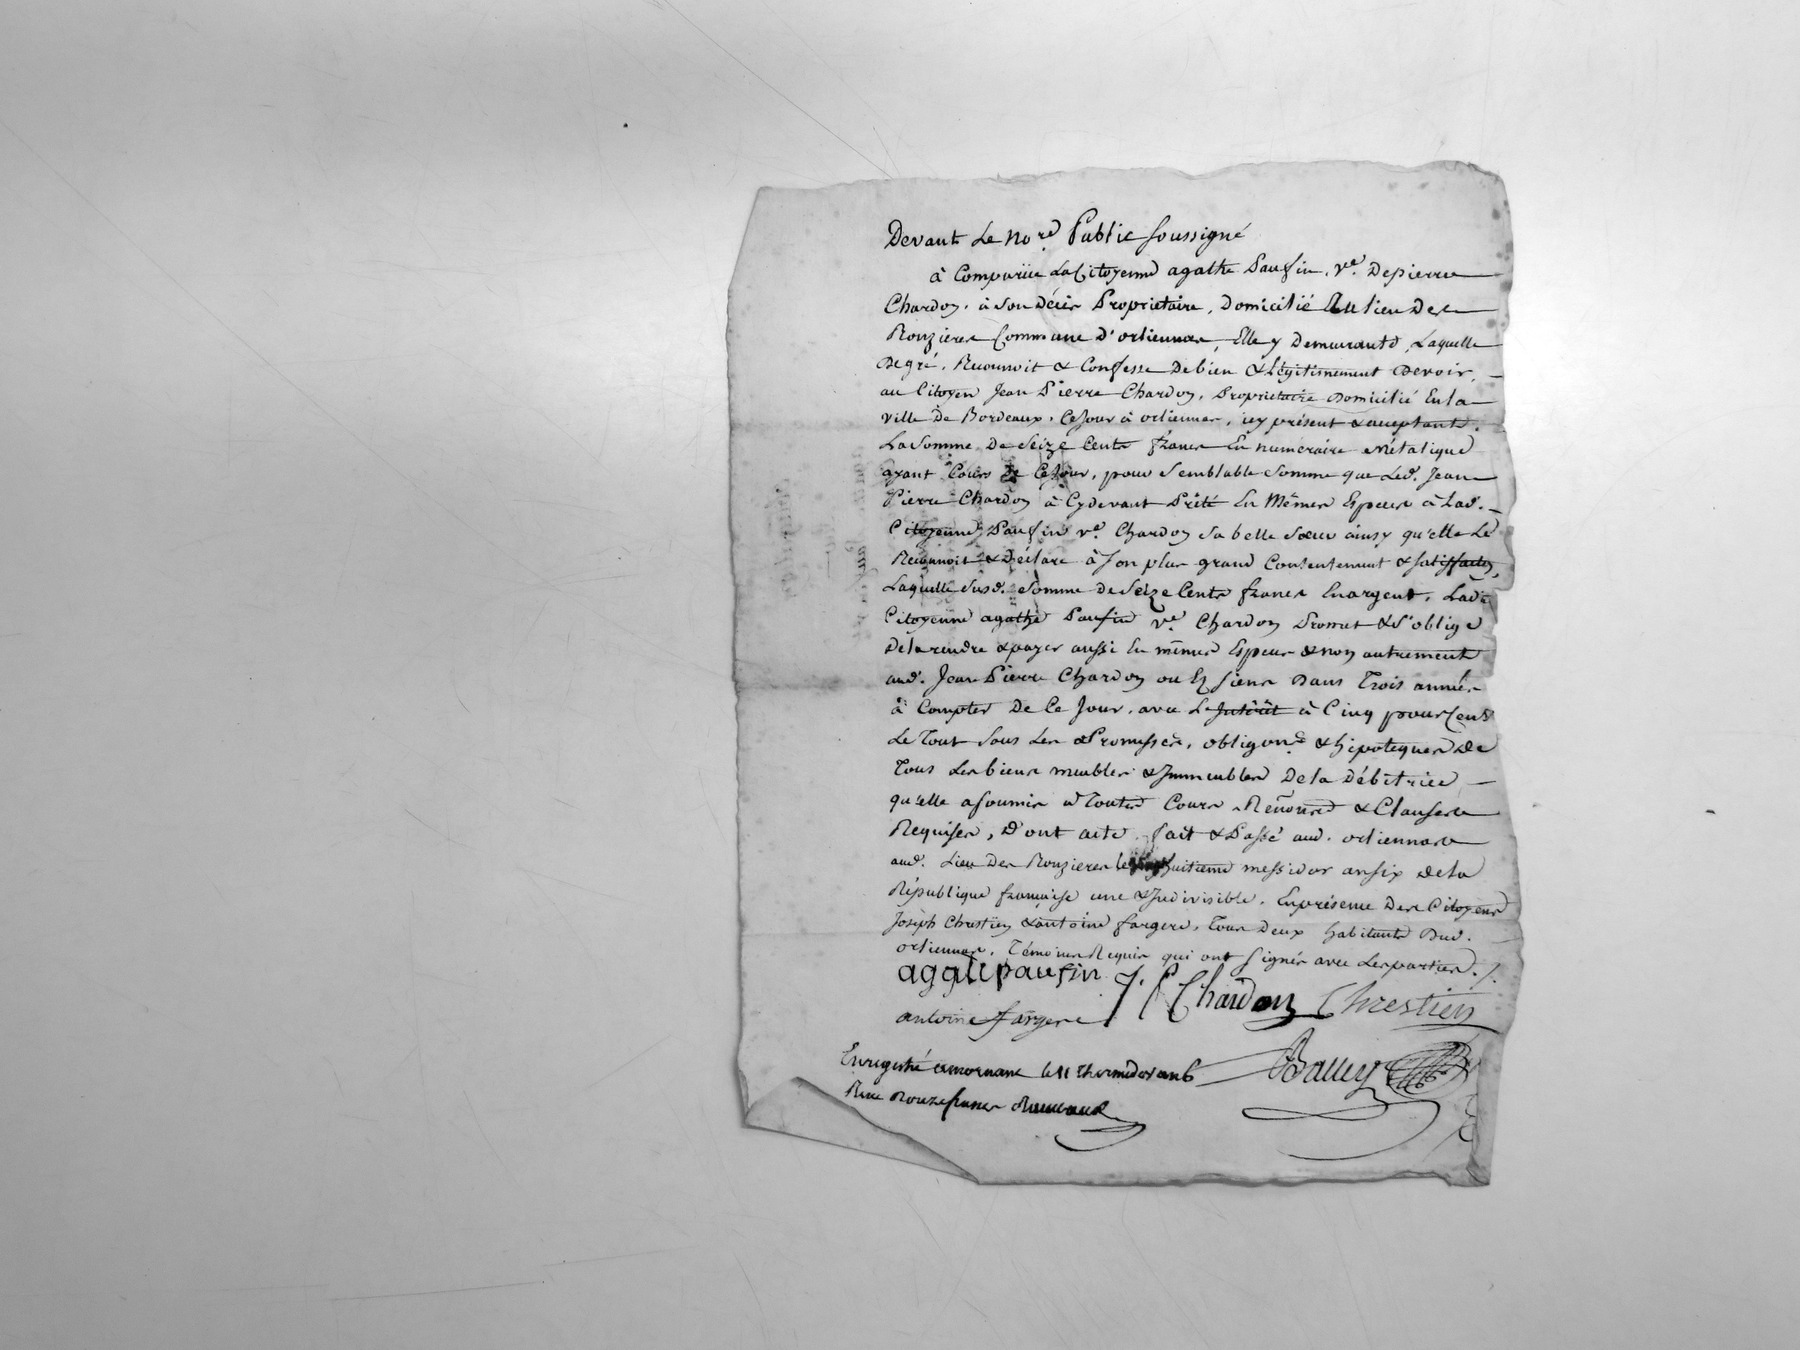 Devant Le no.re Public soussigné
à Comparüe La Citoyenne agathe Paufin, v.e De pierre
Chardon, à son Décès Proprietaire, Domicilié Au lieu Des
Rouzieres Commune D'orliennas, Elle y Demeurante, Laquelle
De gré, Reconnoit & Confesse De bien & légitimement Devoir,
au Citoyen Jean Pierre Chardon, Proprietaire Domicilié En la
ville De Bordeaux, Ce Jour à orliennas, icy présent & acceptant,
La Somme De Seize Cents francs En numéraire Métalique
ayant Cours De Ce Jour, pour Semblable Somme que Led. Jean
Pierre Chardon à Cydevant Prêté En Mêmes Especes à Lad.
Citoyenne Paufin v.e Chardon sa belle Sœur ainsy qu'elle Le
Reconnoit & Déclare à Son plus grand Contentement & satisfaction,
Laquelle Susd. Somme De Seize Cents francs En argent, Lad.e
Citoyenne agathe Paufin v.e Chardon Promet & S'oblige
De la rendre & payer aussi En mêmes Especes & non autrement
aud. Jean Pierre Chardon ou Es Siens Dans Trois années
à Compter De Ce Jour, avec L'Intérêt à Cinq pour Cent
Le Tout Sous Les Promesses, obligons & hipoteques De
Tous Les biens meubles & Immeubles De la Débitrice
qu'elle a Soumis à Toutes Cours Renonce & Clauses
Requises, D'ont acte, fait & Passé aud. orliennas
aud. Lieu Des Rouzieres le huitieme messidor an six De la
République française une & Indivisible, En présence Des Citoyens
Joseph Chrestien & antoine fargere, Tous Deux habitants Dud.
orliennas, Témoins Requis qui ont Signés avec Les parties ./.
agate paufin J. P Chardon Chrestien
antoine fargere
Enregistré a mornant le 11 Thermidor an 6 Balley
Reçu Douze francs